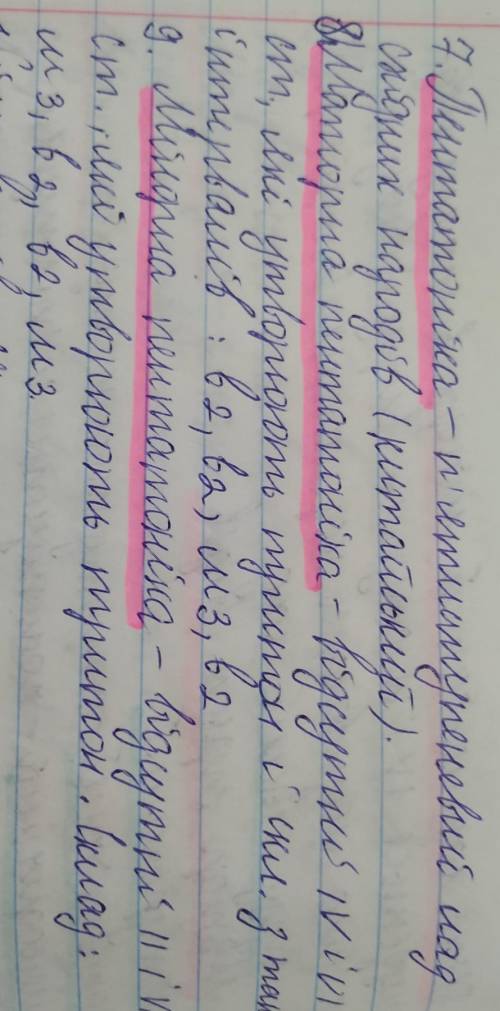 7. Пентатоніка – п'ятиступеневий лад
східних народів (китайський).
8. Мажорна пентатоніка – відсутні IV і VI
ст, які утворюють тритон і скл. з
інтервалів: в2, в2, м3, в2
9. Мінорна пентатоніка – відсутні II і V
ст., які утворюють тритон. Склад:
м3, в2, в2, м3